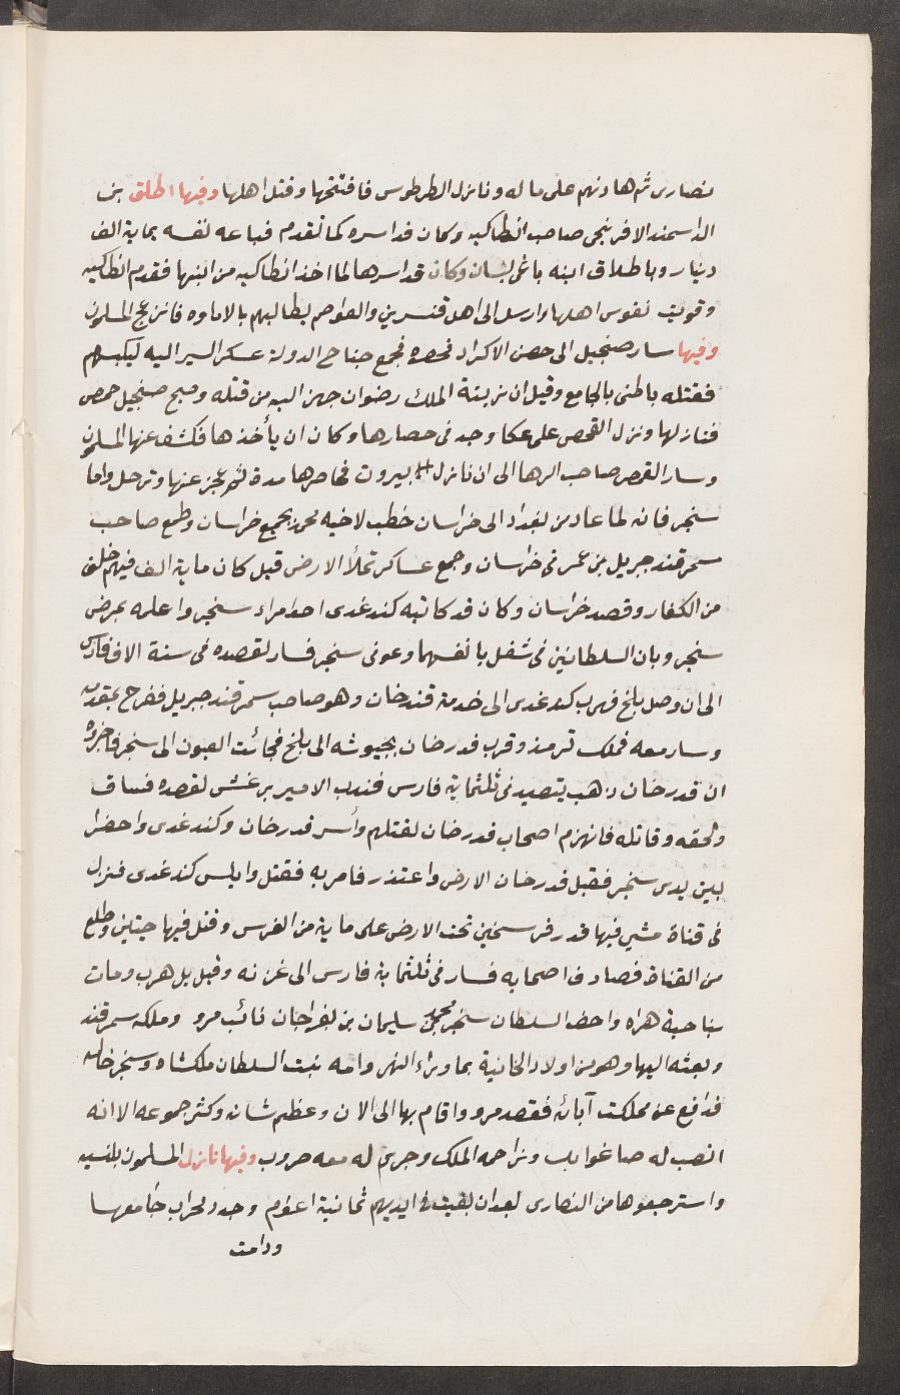 نصارى ثم هادنهم على ماله ونازل الطرطوس فافتتحها وقتل اهلها وفيها اطلق بن
الدانسمند الافرنجى صاحب انطاكيه وكان قد اسره كما تقدم فباعه نفسه بماية الف
دينار وباطلاق ابنه باغى لبسان وكان قد اسرها لما اخذ انطاكيه من ابنها فقدم انطاكيه
وقويت نفوس اهلها وارسل الى اهل قنسرين والعواصم يطالبهم بالاماوه فانزعج المسلمون
وفيها سار صنجيل الى حصن الاكراد فحصره فجمع جناح الدولة عسكر السير اليه ليكبسهم
فقتله باطنى بالجامع وقيل ان زينة الملك رضوان جهز اليه من قتله وصبح صنجيل حمص
فنازلها ونزل القمص على عكا وجد فى حصارها وكان ان يأخذها فكشف عنها المسلمون
وسار القمص صاحب الرها الى ان نازل بيروت فحاصرها مدة ثم عجز عنها وترحل واما
سنجر فانه لما عاد من بغداد الى خراسان خطب لاخيه محمد بجميع خراسان وطمع صاحب
سمرقند جبريل بن عمر فى خراسان وجمع عساكر تملأ الارض قيل كان ماية الف فيهم خلق
من الكفار وقصد خراسان وكان قد كاتبه كندغدى احد امراء سنجر واعلمه بمرض
سنجر وبان السلطانين فى شغل بانفسهما وعوفى سنجر فسار لقصده فى ستة الاف فارس
الى ان وصل بلخ فهرب كندغدى الى خدمة قندخان وهو صاحب سمرقند جبريل ففرح بمقدمه
وسار معه فملك ترمذ وقرب قدرخان بجيوشه الى بلخ فجائت العيون الى سنجر فاخبروه
ان قدرخان ذهب يتصيد فى ثلثماية فارس فندب الامير برغش لقصده فساق
ولحقه وقاتله فانهزم اصحاب قدرخان لقتلهم وأسر قدرخان وكندغدى واحضرا
بين يدى سنجر فقبل قدرخان الارض واعتذر فامر به فقتل وابلس كندغدى فنزل
فى قناة مشى فيها قدر فرسخين تحت الارض على ماية من الفرس وقتل فيها حيتين وطلع
من القناة فصادف اصحابه فسار فى ثلثماية فارس الى غزنه وقيل بل هرب ومات
بناحية هراه واحضر السلطان سنجر محمد بن سليمان بن بغراخان نائب مرو وملكه سمرقند
وبعثه اليها وهو من اولاد الخانية بما وراء النهر وامه بنت السلطان ملكشاه وسنجر خاله
فدافع عن مملكت آبائه فقصد مرو واقام بها الى الان وعظم شانه وكثر جموعه الا انه
انتصب له صاغوابك وزاحمه الملك وجرى له معه حروب وفيها نازل المسلمون بلنسيه
واسترجعوها من النصارى بعد ان بقيت فى ايديهم ثمانية اعوام وجدد لحراب جامعها
ودامت